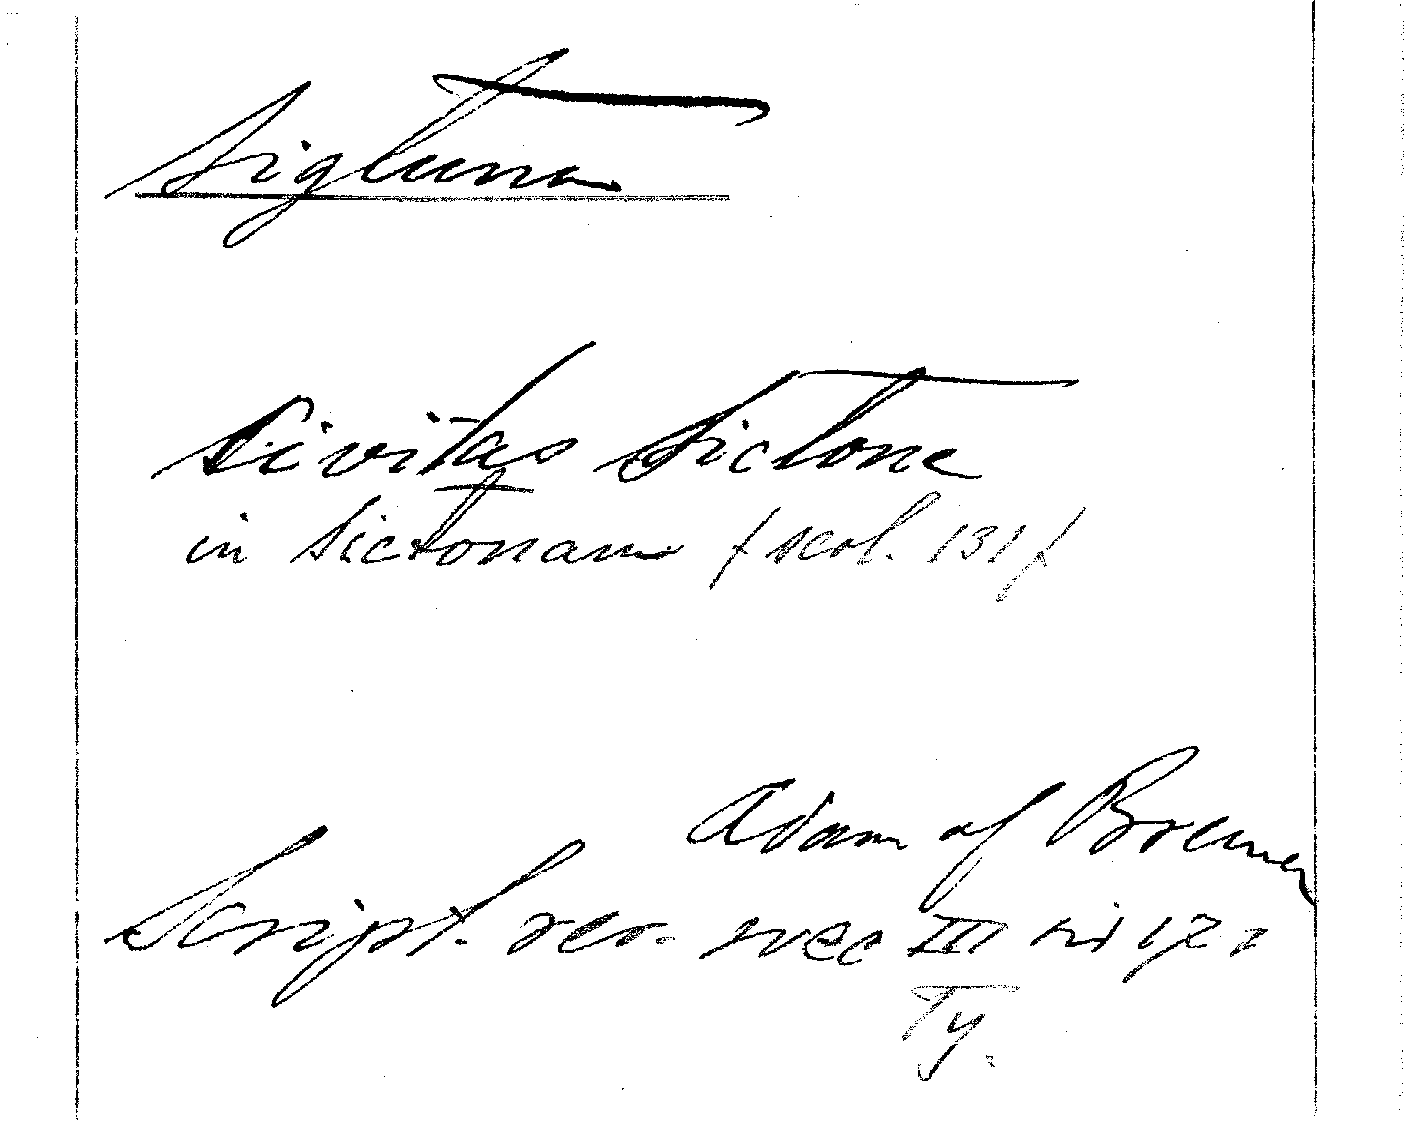 Sigtuna
Civitas Sictone
in Sictonam /scol. 131/
Adam af Bremen
Script. rer. svec III sid
Ty.